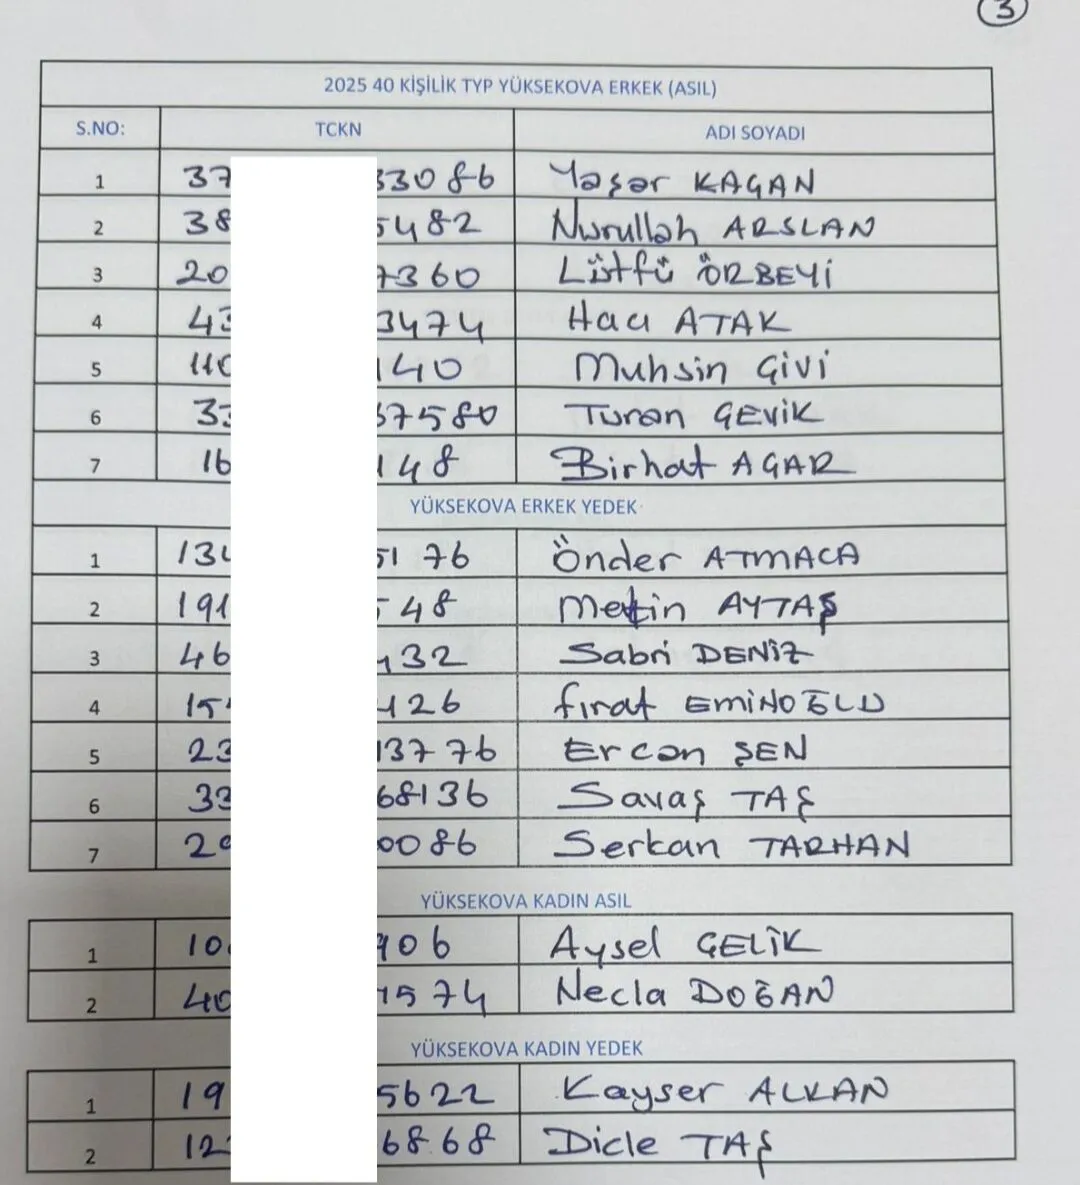 3
2025 40 KİŞİLİK TYP YÜKSEKOVA ERKEK (ASIL)
S.NO: TCKN ADI SOYADI
1 37 33086 Yaşar KAGAN
2 38 5482 Nurullah ARSLAN
3 20 7360 Lütfü ÖRBEYİ
4 43 3474 Hacı ATAK
5 110 140 Muhsin GİVİ
6 33 37580 Turan GEVİK
7 16 148 Birhat AGAR
YÜKSEKOVA ERKEK YEDEK
1 134 5176 Önder ATMACA
2 191 548 Metin AYTAŞ
3 46 432 Sabri DENİZ
4 15 126 Fırat EMİNOĞLU
5 23 13776 Ercan ŞEN
6 33 68136 Savaş TAŞ
7 29 0086 Serkan TARHAN
YÜKSEKOVA KADIN ASIL
1 10 906 Aysel GELİK
2 40 1574 Necla DOĞAN
YÜKSEKOVA KADIN YEDEK
1 19 5622 Kayser ALKAN
2 12 6868 Dicle TAŞ